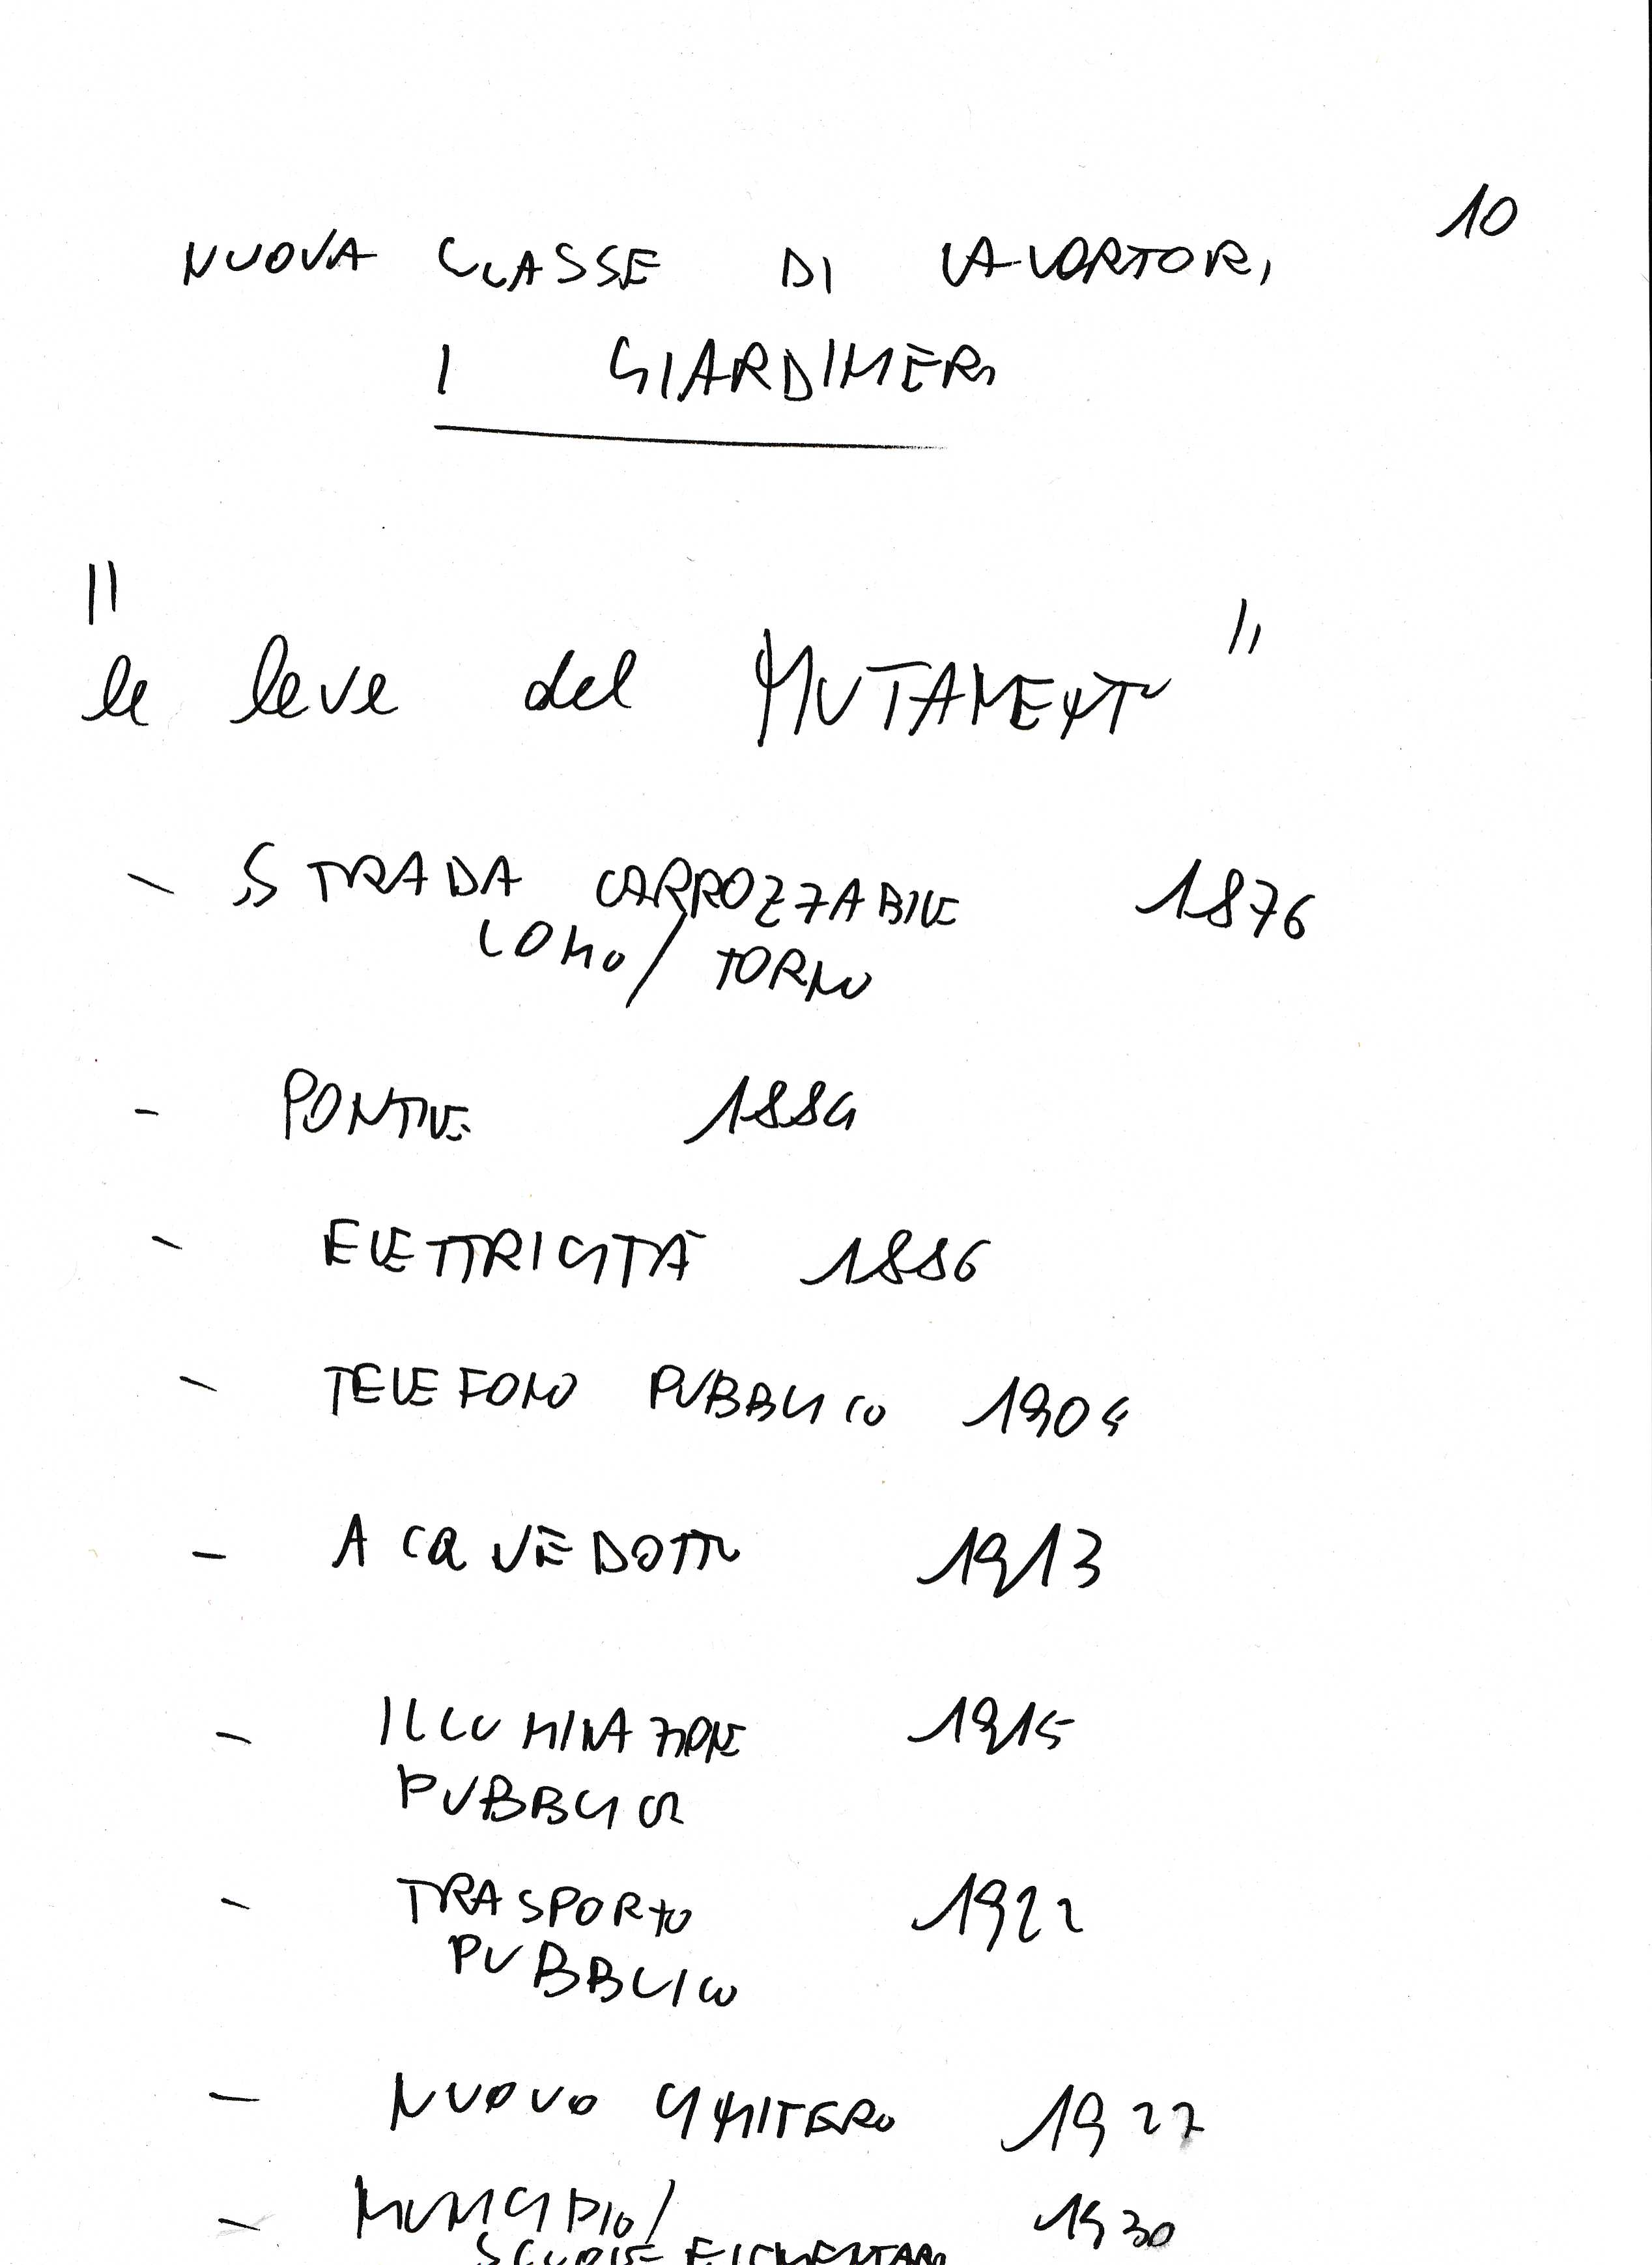 10
NUOVA CLASSE DI LAVORTORI
I GIARDINIERI
"
le leve del MUTAMENTO "
- STRADA CARROZZABILE 1876
COMO / TORNO
- PONTILE 1884
- ELETTRICITÀ 1886
- TELEFONO PUBBLICO 1904
- ACQUEDOTTO 1913
- ILLUMINAZIONE 1915
PUBBLICA
- TRASPORTO 1922
PUBBLICO
- NUOVO CIMITERO 1927
- MUNICIPIO / 1930
SCUOLE ELEMENTARI